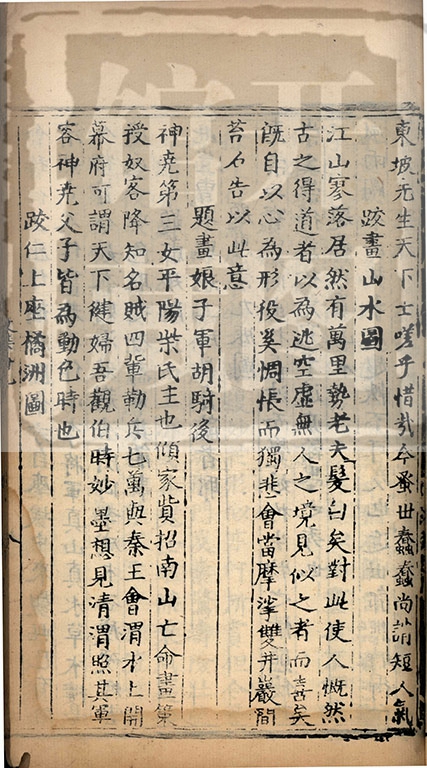 東坡先生天下士嗟乎惜哉今蚤世蠢蠢尚謂短人氣
跋畫山水圖
江山寥落居然有萬里勢老夫髮白矣對此使人慨然
古之得道者以為逃空虛無人之境見似之者而喜矣
既自以心為形役奚惆悵而獨悲會當摩挲雙井巖間
苔石告以此意
題畫娘子軍胡騎後
神堯第三女平陽柴氏主也傾家貲招南山亡命畫策
授奴客降知名賊四輩勒兵七萬與秦王會渭水上開
幕府可謂天下健婦吾觀伯時妙墨想見清渭照其軍
容神堯父子皆為動色時也
跋仁上座橘洲圖